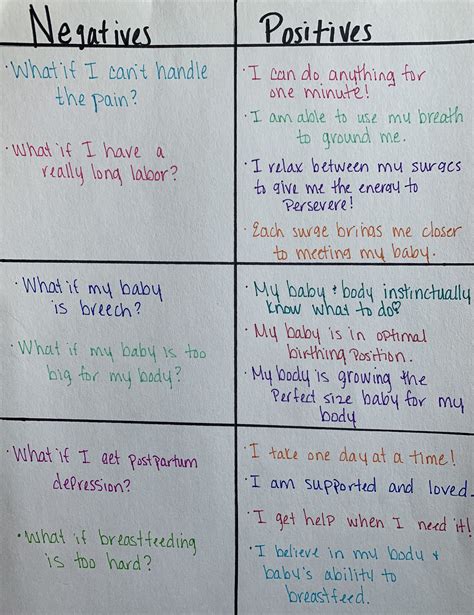 Negatives
Positives
·What if I can't handle
the pain?
·What if I have a
really long labor?
·I can do anything for
one minute!
·I am able to use my breath
to ground me.
·I relax between my surges
to give me the energy to
Persevere!
·Each surge brings me closer
to meeting my baby.
·What if my baby
is breech?
·What if my baby is too
big for my body?
·My baby + body instinctually
know what to do?
·My baby is in optimal
birthing position.
·My body is growing the
Perfect size baby for my
body
·What if I get postpartum
depression?
·What if breastfeeding
is too hard?
·I take one day at a time!
·I am supported and loved.
·I get help when I need it!
·I believe in my body +
baby's ability to
breastfeed.